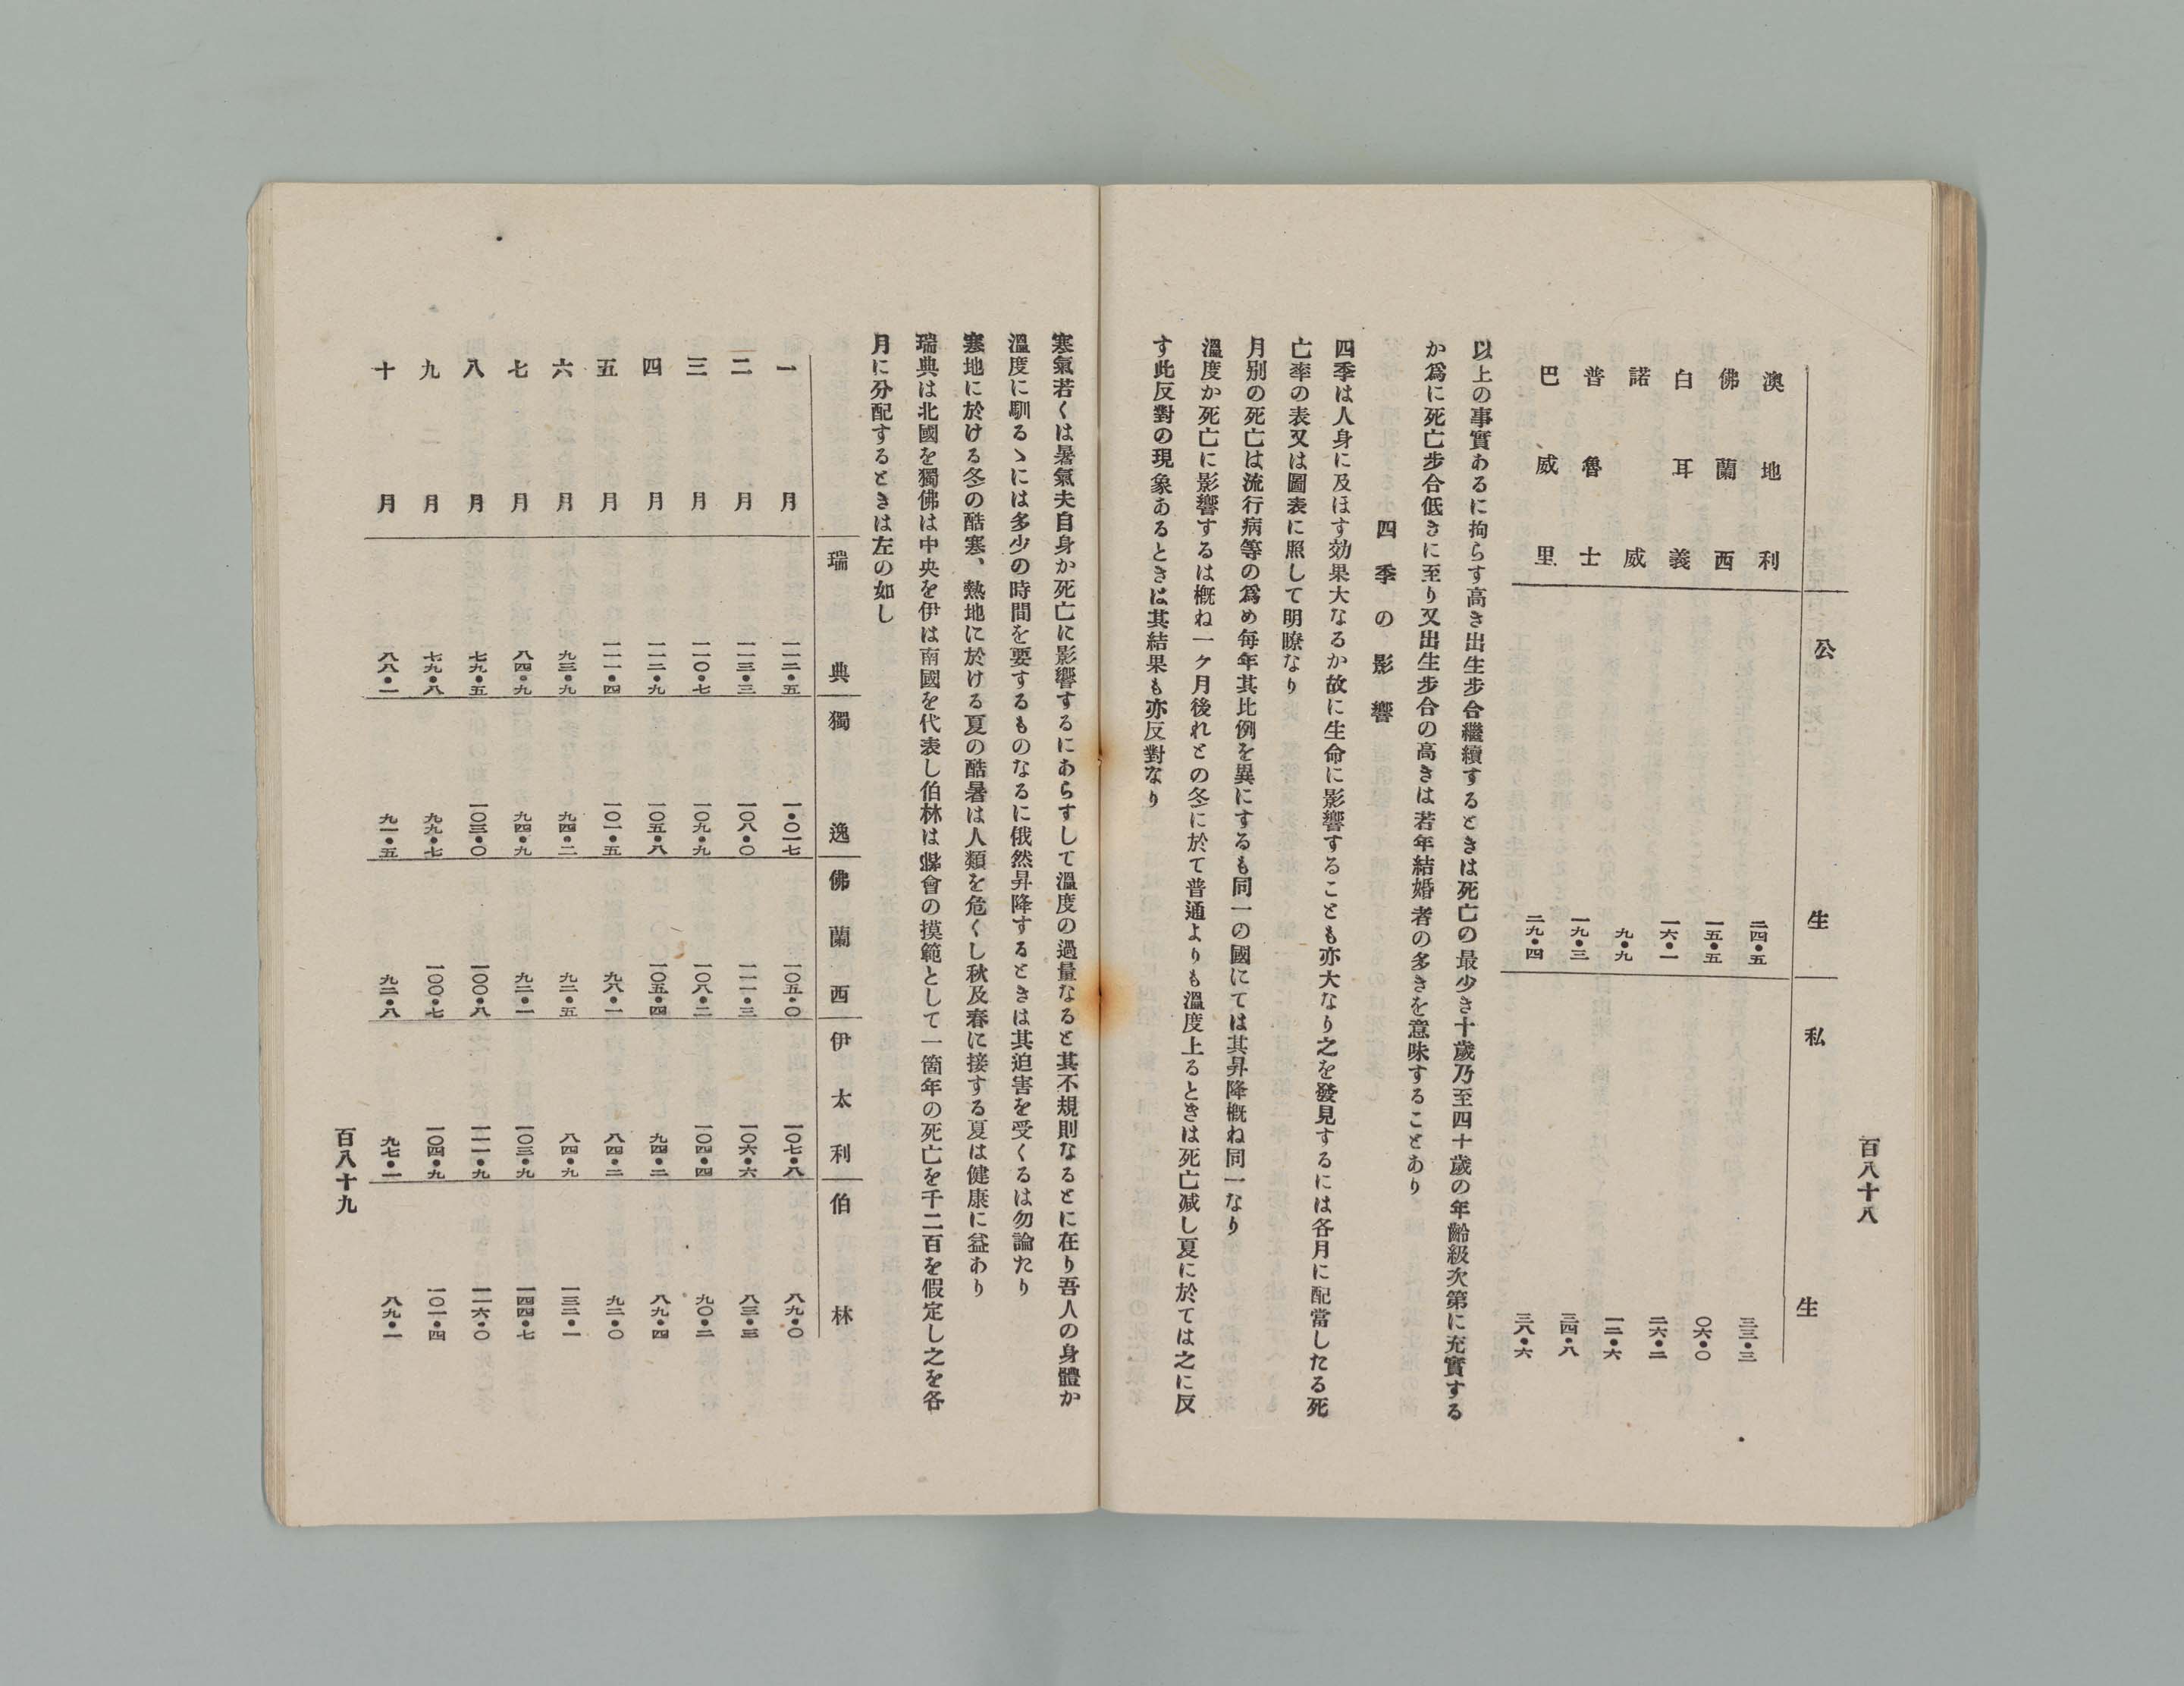 百八十八
公生 私生
澳地利 二四・五 三三・三
佛蘭西 一五・五 〇六・〇
白耳義 一六・一 二六・二
諾威 九・九 一二・六
普魯士 一九・三 三四・八
巴威里 二九・四 三八・六
以上の事實あるに拘らす高き出生步合繼續するときは死亡の最少き十歲乃至四十歲の年齡級次第に充實する
か爲に死亡步合低きに至り又出生步合の高きは若年結婚者の多きを意味することあり
四季の影響
四季は人身に及ほす効果大なるか故に生命に影響することも亦大なり之を發見するには各月に配當したる死
亡率の表又は圖表に照して明瞭なり
月別の死亡は流行病等の爲め每年其比例を異にするも同一の國にては其昇降槪ね同一なり
溫度か死亡に影響するは槪ね一ケ月後れとの冬に於て普通よりも溫度上るときは死亡减し夏に於ては之に反
す此反對の現象あるときは其結果も亦反對なり
寒氣若くは暑氣夫自身か死亡に影響するにあらすして溫度の過量なると其不規則なるとに在り吾人の身體か
溫度に馴るゝには多少の時間を要するものなるに俄然昇降するときは其迫害を受くるは勿論たり
寒地に於ける冬の酷寒、熱地に於ける夏の酷暑は人類を危くし秋及春に接する夏は健康に益あり
瑞典は北國を獨佛は中央を伊は南國を代表し伯林は都會の摸範として一箇年の死亡を千二百を假定し之を各
月に分配するときは左の如し
瑞典 獨逸 佛蘭西 伊太利 伯林
一月 一一二・五 一・〇一七 一〇五・〇 一〇七・八 八九・〇
二月 一一三・三 一〇八・〇 一一一・三 一〇六・六 八三・三
三月 一一〇・七 一〇九・九 一〇八・二 一〇四・四 九〇・二
四月 一一二・九 一〇五・八 一〇五・四 九四・二 八九・四
五月 一一一・四 一〇一・五 九六・一 八四・二 九二・〇
六月 九三・九 九四・二 九二・五 八四・九 一三二・一
七月 八四・九 九四・九 九二・一 一〇三・九 一四四・七
八月 七九・五 一〇三・〇 一〇〇・八 一一一・九 一一六・〇
九月 七九・八 九九・七 一〇〇・七 一〇四・九 一〇一・四
十月 八八・一 九一・五 九二・八 九七・一 八九・一
百八十九